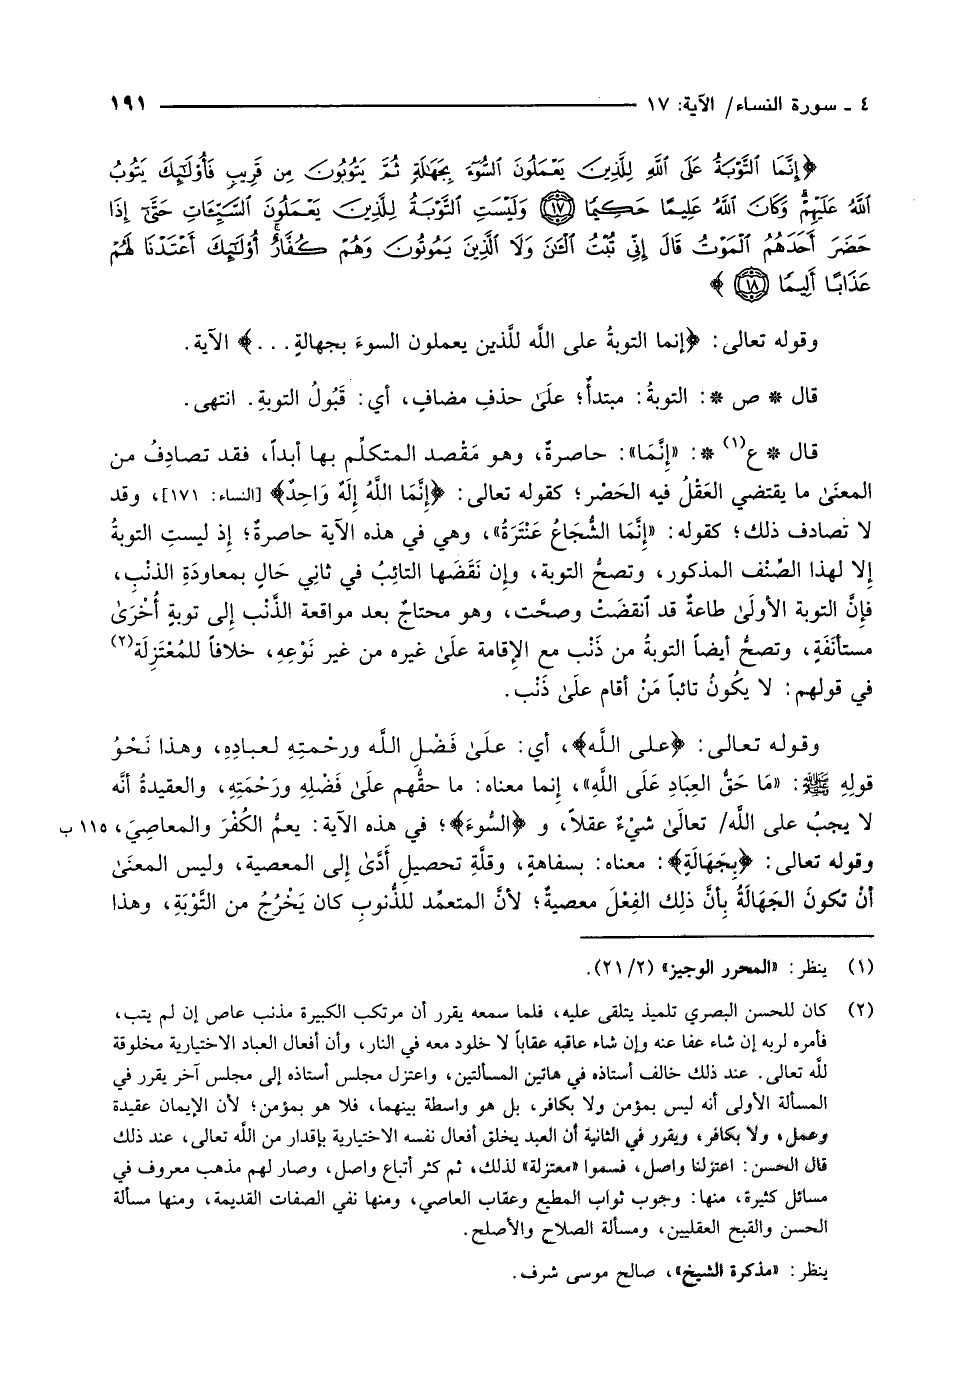 ٤ ـ سورة النساء/ الآية: ١٧ ــــــ ١٩١
﴿إِنَّمَا التَّوْبَةُ عَلَى اللَّهِ لِلَّذِينَ يَعْمَلُونَ السُّوٓءَ بِجَهَٰلَةٍ ثُمَّ يَتُوبُونَ مِن قَرِيبٍ فَأُوْلَٰٓئِكَ يَتُوبُ
اللَّهُ عَلَيْهِمْ وَكَانَ اللَّهُ عَلِيمًا حَكِيمًا ١٧ وَلَيْسَتِ التَّوْبَةُ لِلَّذِينَ يَعْمَلُونَ السَّيِّـَٔاتِ حَتَّىٰٓ إِذَا
حَضَرَ أَحَدَهُمُ الْمَوْتُ قَالَ إِنِّي تُبْتُ الْـَٰٔنَ وَلَا الَّذِينَ يَمُوتُونَ وَهُمْ كُفَّارٌ أُوْلَٰٓئِكَ أَعْتَدْنَا لَهُمْ
عَذَابًا أَلِيمًا ١٨﴾
وقوله تعالى: ﴿إنما التوبةُ على اللَّه للَّذين يعملون السوءَ بجهالةٍ...﴾ الآية.
قال * ص *: التوبةُ: مبتدأٌ؛ علَىٰ حذفِ مضافٍ، أي: قَبُولُ التوبةِ. انتهى.
قال * ع(١) *: «إِنَّمَا»: حاصرةٌ، وهو مَقْصد المتكلِّم بها أبداً، فقد تصادِفُ من
المعنَىٰ ما يقتضي العَقْلُ فيه الحَصْر؛ كقوله تعالى: ﴿إِنَّمَا اللَّهُ إِلَهٌ وَاحِدٌ﴾ [النساء: ١٧١]، وقد
لا تصادف ذلك؛ كقوله: «إِنَّمَا الشُّجَاعُ عَنْتَرَةُ»، وهي في هذه الآية حاصرةٌ؛ إذ ليستِ التوبةُ
إلا لهذا الصِّنْف المذكور، وتصحُّ التوبة، وإن نَقَضَها التائِبُ في ثاني حَالٍ بمعاودَةِ الذنْبِ،
فإنَّ التوبة الأولَىٰ طاعةٌ قد ٱنقضَتْ وصحَّت، وهو محتاجٌ بعد مواقعة الذَّنْب إلى توبةٍ أُخْرَىٰ
مستأنَفَةٍ، وتصحُّ أيضاً التوبةُ من ذَنْب مع الإِقامة علَىٰ غيره من غير نَوْعِهِ، خلافاً للمُعْتَزِلَة(٢)
في قولهم: لا يكُونُ تائباً مَنْ أقام علَىٰ ذَنْب.
وقوله تعالى: ﴿على اللَّه﴾، أي: علَىٰ فَضْلِ اللَّه ورحْمتِهِ لعبادِهِ، وهذا نَحْوُ
قولِهِ ﷺ: «مَا حَقُّ العِبَادِ عَلَى اللَّهِ»، إنما معناه: ما حقُّهم علَىٰ فَضْلِهِ ورَحْمَتِهِ، والعقيدةُ أنَّه
لا يجبُ على اللَّه/ تعالَىٰ شيْءٌ عقلاً، و ﴿السُّوءَ﴾؛ في هذه الآية: يعمُّ الكُفْرَ والمعاصِيَ، ١١٥ ب
وقوله تعالى: ﴿بِجَهَالَةٍ﴾: معناه: بسفاهةٍ، وقلَّةِ تحصيلٍ أدَّىٰ إلى المعصية، وليس المعنَىٰ
أنْ تكونَ الجَهَالَةُ بِأنَّ ذلِك الفِعْلَ معصيةٌ؛ لأنَّ المتعمِّد للذُّنوبِ كان يَخْرُجُ من التَّوْبَةِ، وهذا
(١) ينظر: «المحرر الوجيز» (٢١/٢).
(٢) كان للحسن البصري تلميذ يتلقى عليه، فلما سمعه يقرر أن مرتكب الكبيرة مذنب عاص إن لم يتب،
فأمره لربه إن شاء عفا عنه وإن شاء عاقبه عقاباً لا خلود معه في النار، وأن أفعال العباد الاختيارية مخلوقة
للّٰه تعالى. عند ذلك خالف أستاذه في هاتين المسألتين، واعتزل مجلس أستاذه إلى مجلس آخر يقرر في
المسألة الأولى أنه ليس بمؤمن ولا بكافر، بل هو واسطة بينهما، فلا هو بمؤمن؛ لأن الإيمان عقيدة
وعمل، ولا بكافر، ويقرر في الثانية أن العبد يخلق أفعال نفسه الاختيارية بإقدار من اللّٰه تعالى، عند ذلك
قال الحسن: اعتزلنا واصل، فسموا «معتزلة» لذلك، ثم كثر أتباع واصل، وصار لهم مذهب معروف في
مسائل كثيرة، منها: وجوب ثواب المطيع وعقاب العاصي، ومنها نفي الصفات القديمة، ومنها مسألة
الحسن والقبح العقليين، ومسألة الصلاح والأصلح.
ينظر: «مذكرة الشيخ»، صالح موسى شرف.